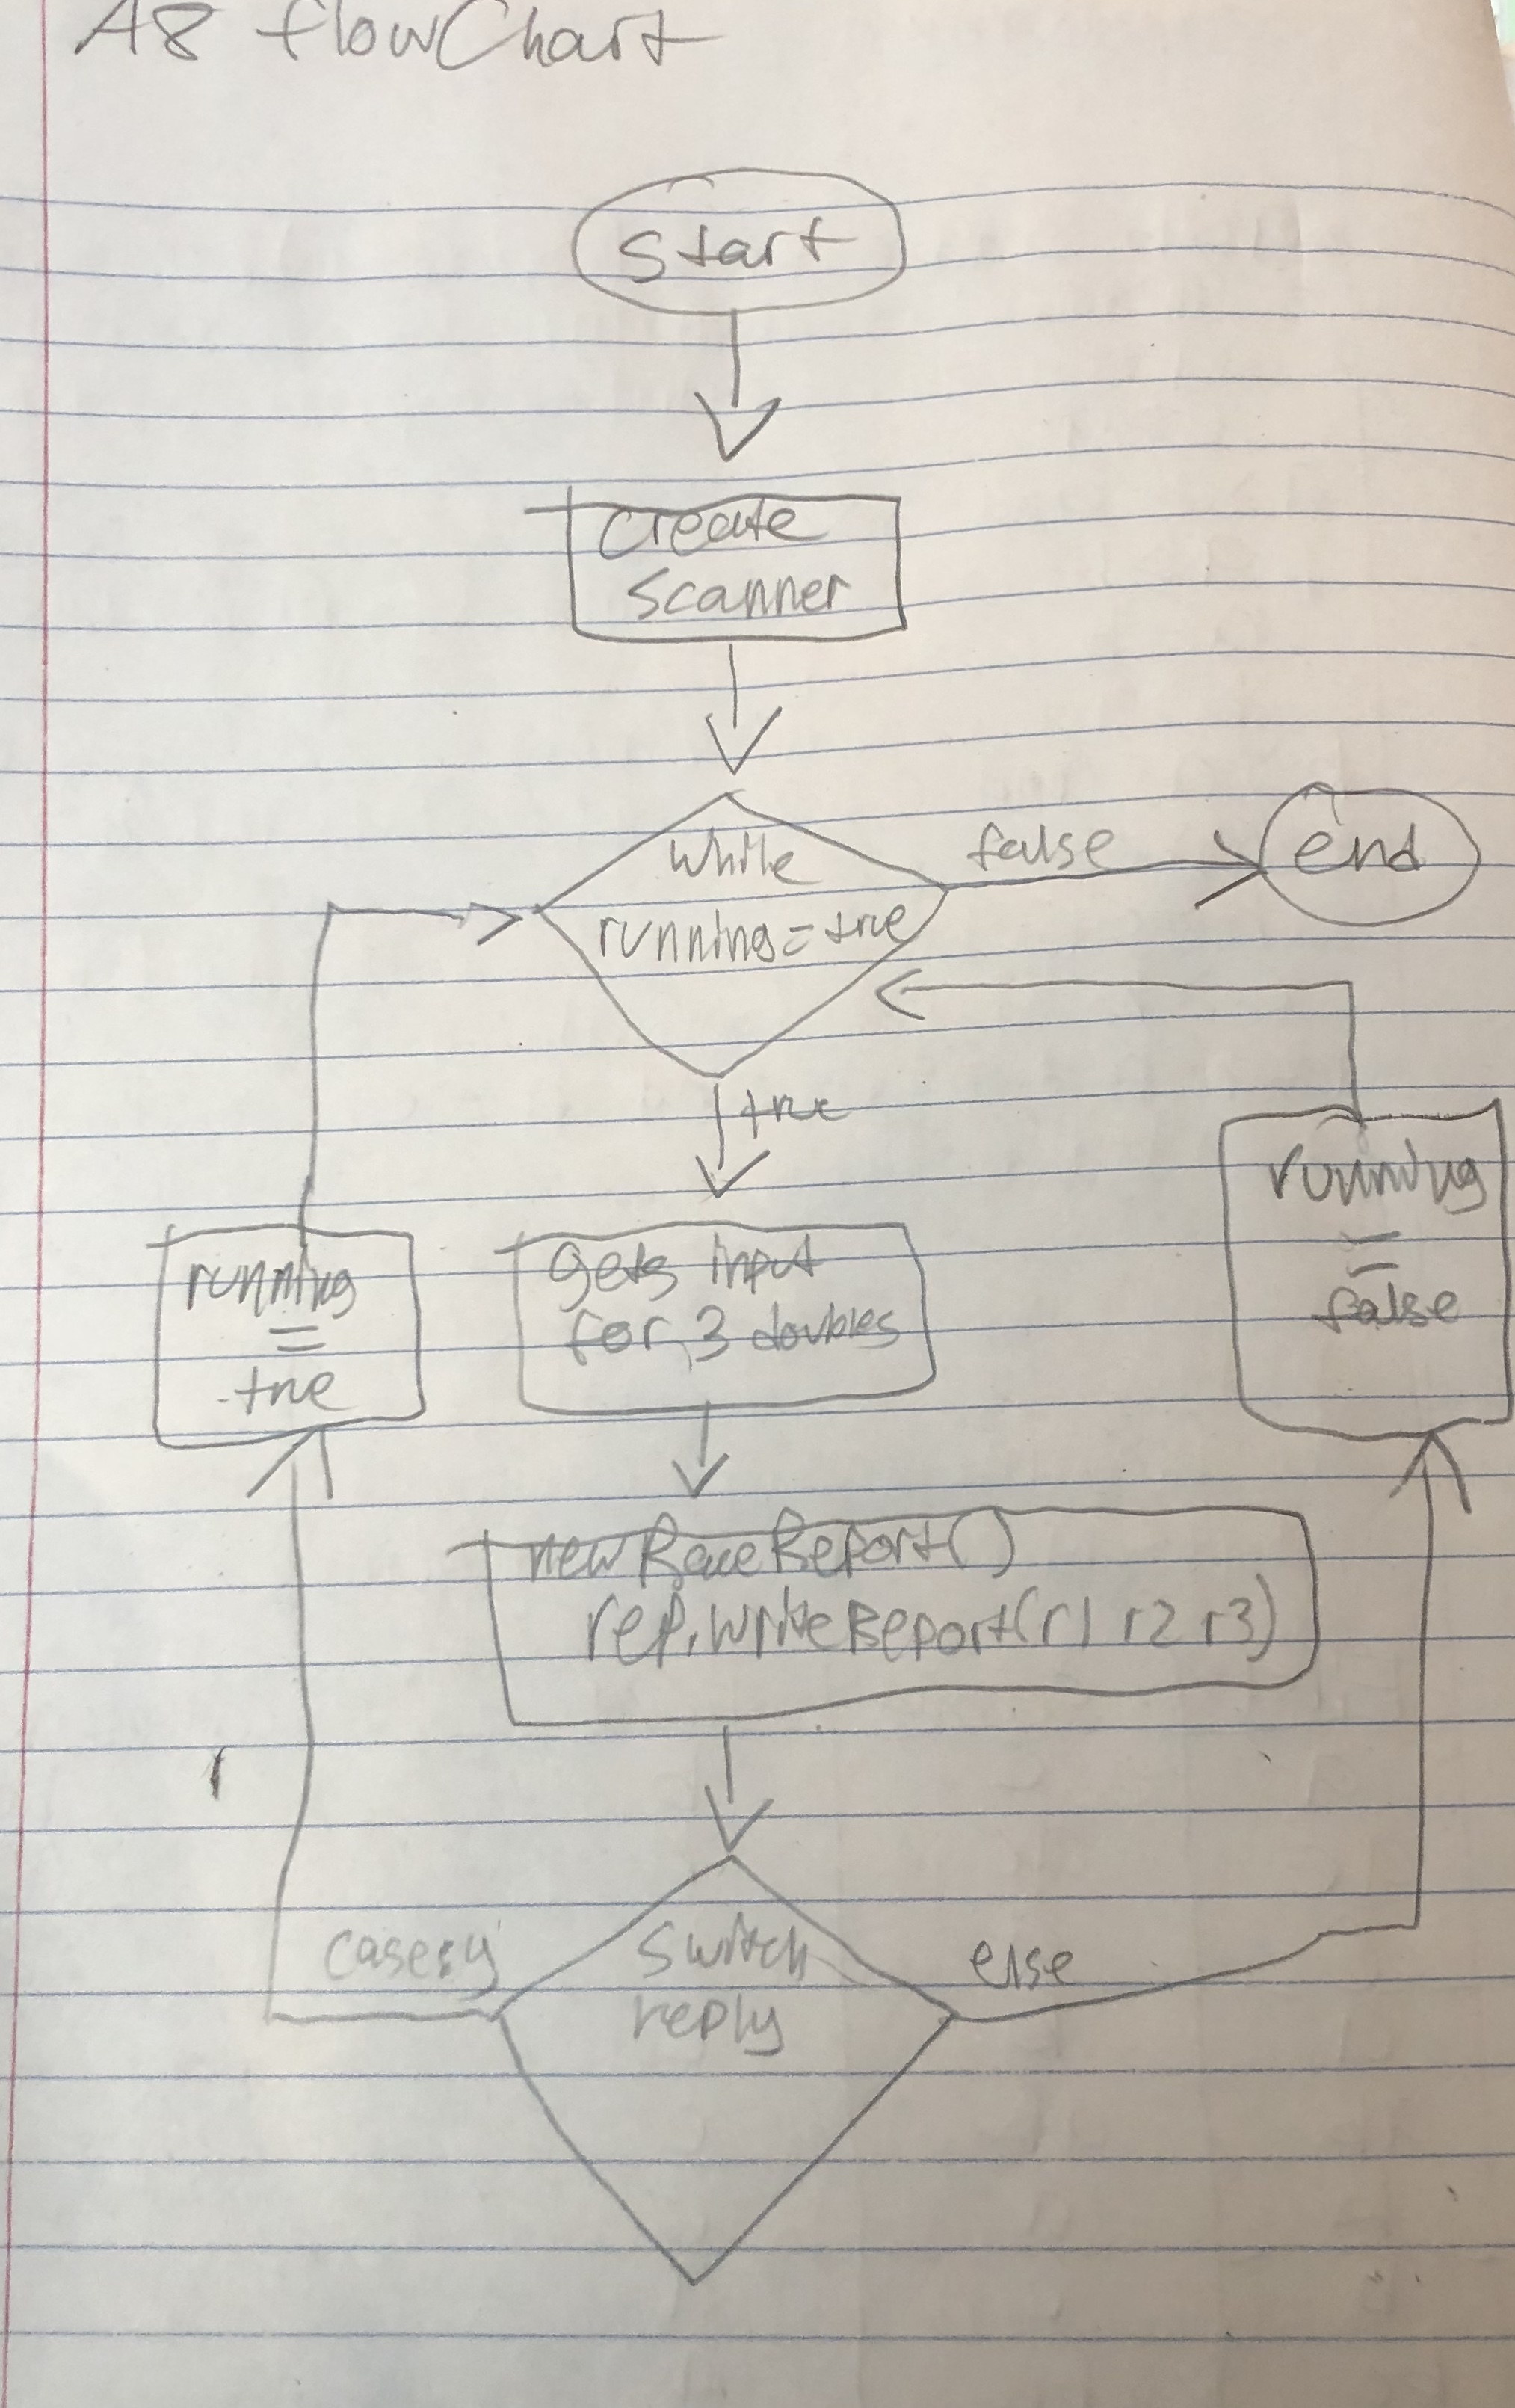 A8 flowChart
Start
create
scanner
while
running=true
false
end
true
running
=
true
gets input
for 3 doubles
running
=
false
new RaceReport()
rep.writeReport(r1 r2 r3)
case:y
switch
reply
else